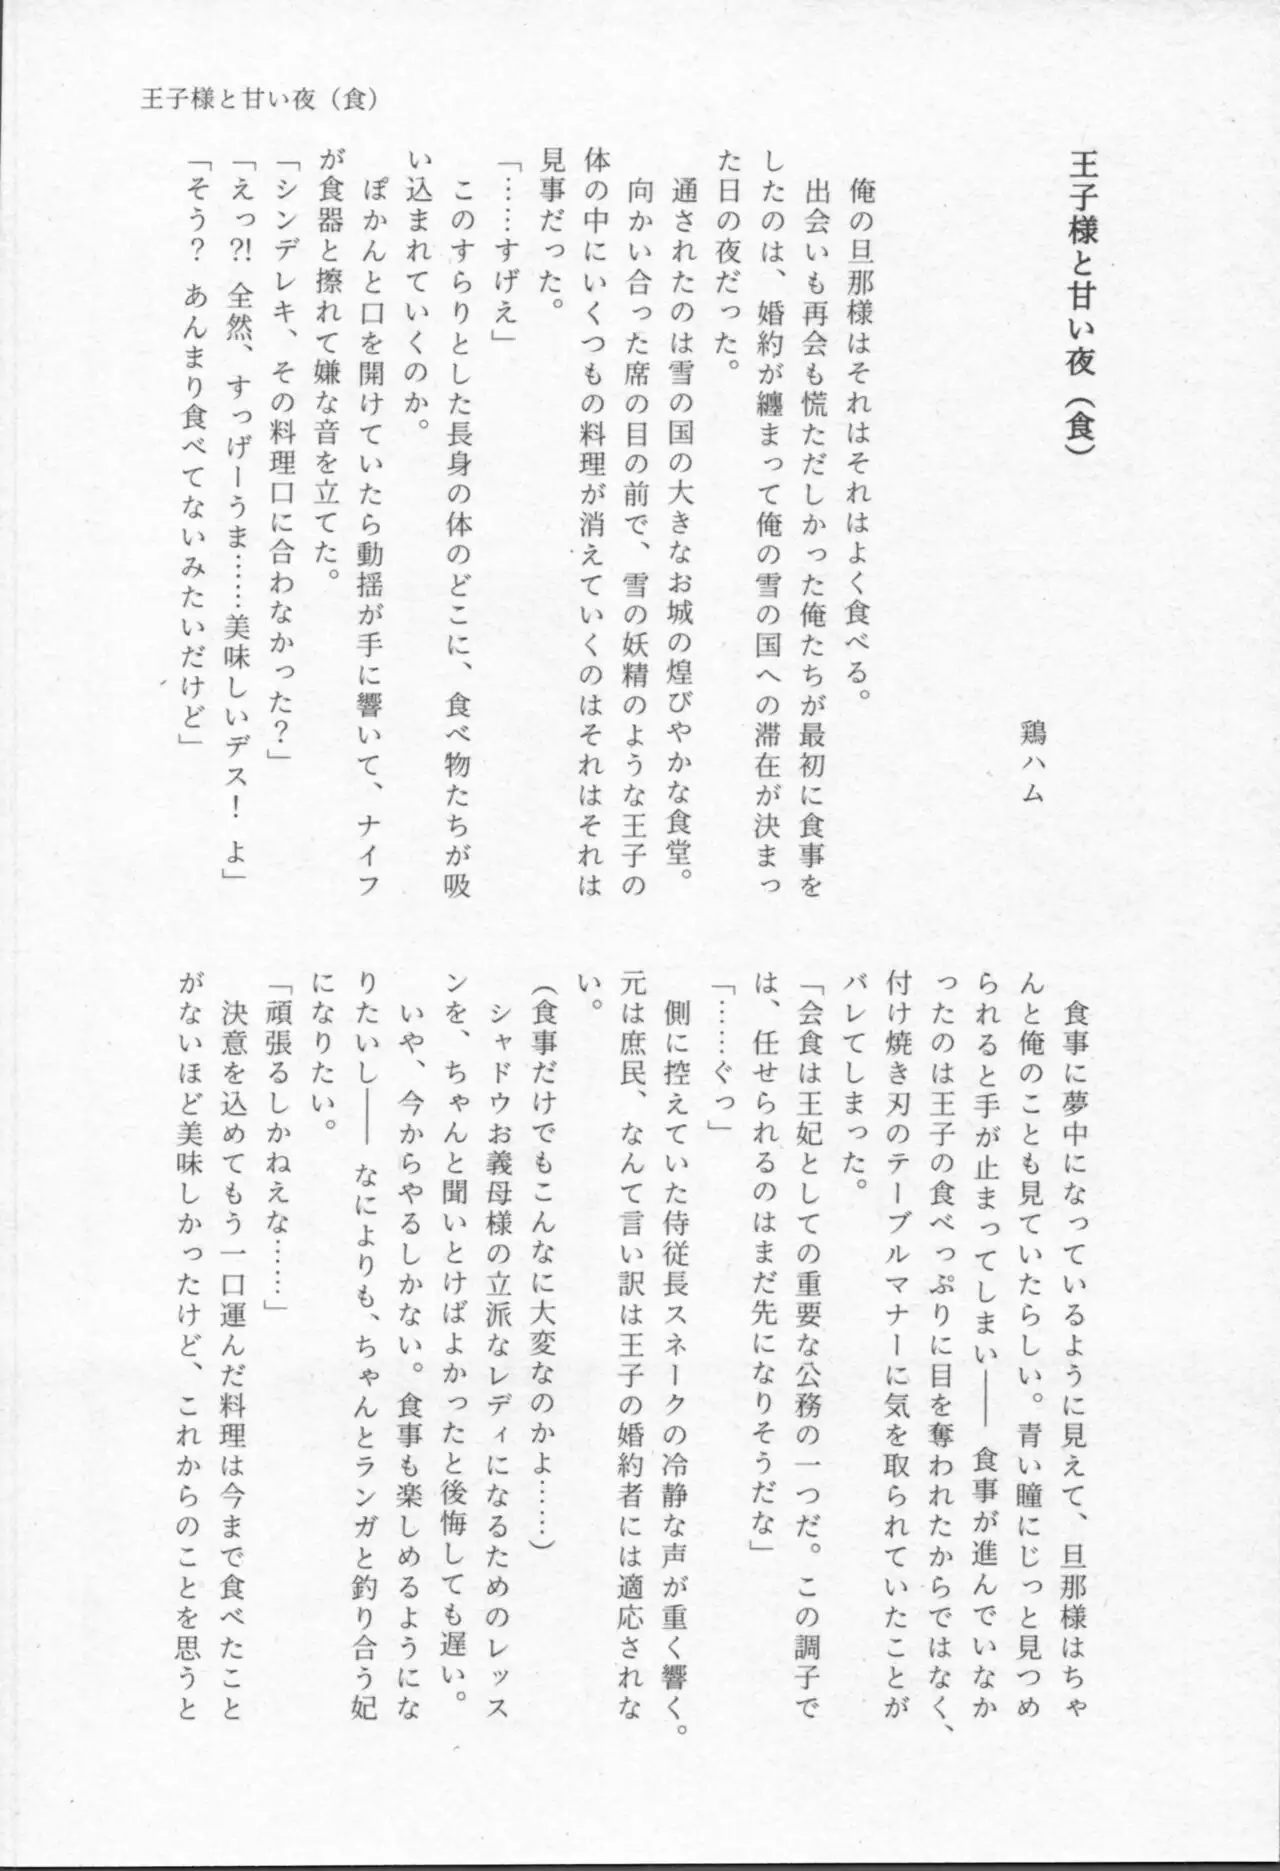 王子様と甘い夜（食）
王子様と甘い夜（食）
鶏ハム
　俺の旦那様はそれはそれはよく食べる。
　出会いも再会も慌ただしかった俺たちが最初に食事を
したのは、婚約が纏まって俺の雪の国への滞在が決まっ
た日の夜だった。
　通されたのは雪の国の大きなお城の煌びやかな食堂。
　向かい合った席の目の前で、雪の妖精のような王子の
体の中にいくつもの料理が消えていくのはそれはそれは
見事だった。
「……すげえ」
　このすらりとした長身の体のどこに、食べ物たちが吸
い込まれていくのか。
　ぽかんと口を開けていたら動揺が手に響いて、ナイフ
が食器と擦れて嫌な音を立てた。
「シンデレキ、その料理口に合わなかった？」
「えっ?! 全然、すっげーうま……美味しいデス！　よ」
「そう？　あんまり食べてないみたいだけど」
　食事に夢中になっているように見えて、旦那様はちゃ
んと俺のことも見ていたらしい。青い瞳にじっと見つめ
られると手が止まってしまい――　食事が進んでいなか
ったのは王子の食べっぷりに目を奪われたからではなく、
付け焼き刃のテーブルマナーに気を取られていたことが
バレてしまった。
「会食は王妃としての重要な公務の一つだ。この調子で
は、任せられるのはまだ先になりそうだな」
「……ぐっ」
　側に控えていた侍従長スネークの冷静な声が重く響く。
元は庶民、なんて言い訳は王子の婚約者には適応されな
い。
（食事だけでもこんなに大変なのかよ……）
　シャドウお義母様の立派なレディになるためのレッス
ンを、ちゃんと聞いとけばよかったと後悔しても遅い。
　いや、今からやるしかない。食事も楽しめるようにな
りたいし――　なによりも、ちゃんとランガと釣り合う妃
になりたい。
「頑張るしかねえな……」
　決意を込めてもう一口運んだ料理は今まで食べたこと
がないほど美味しかったけど、これからのことを思うと